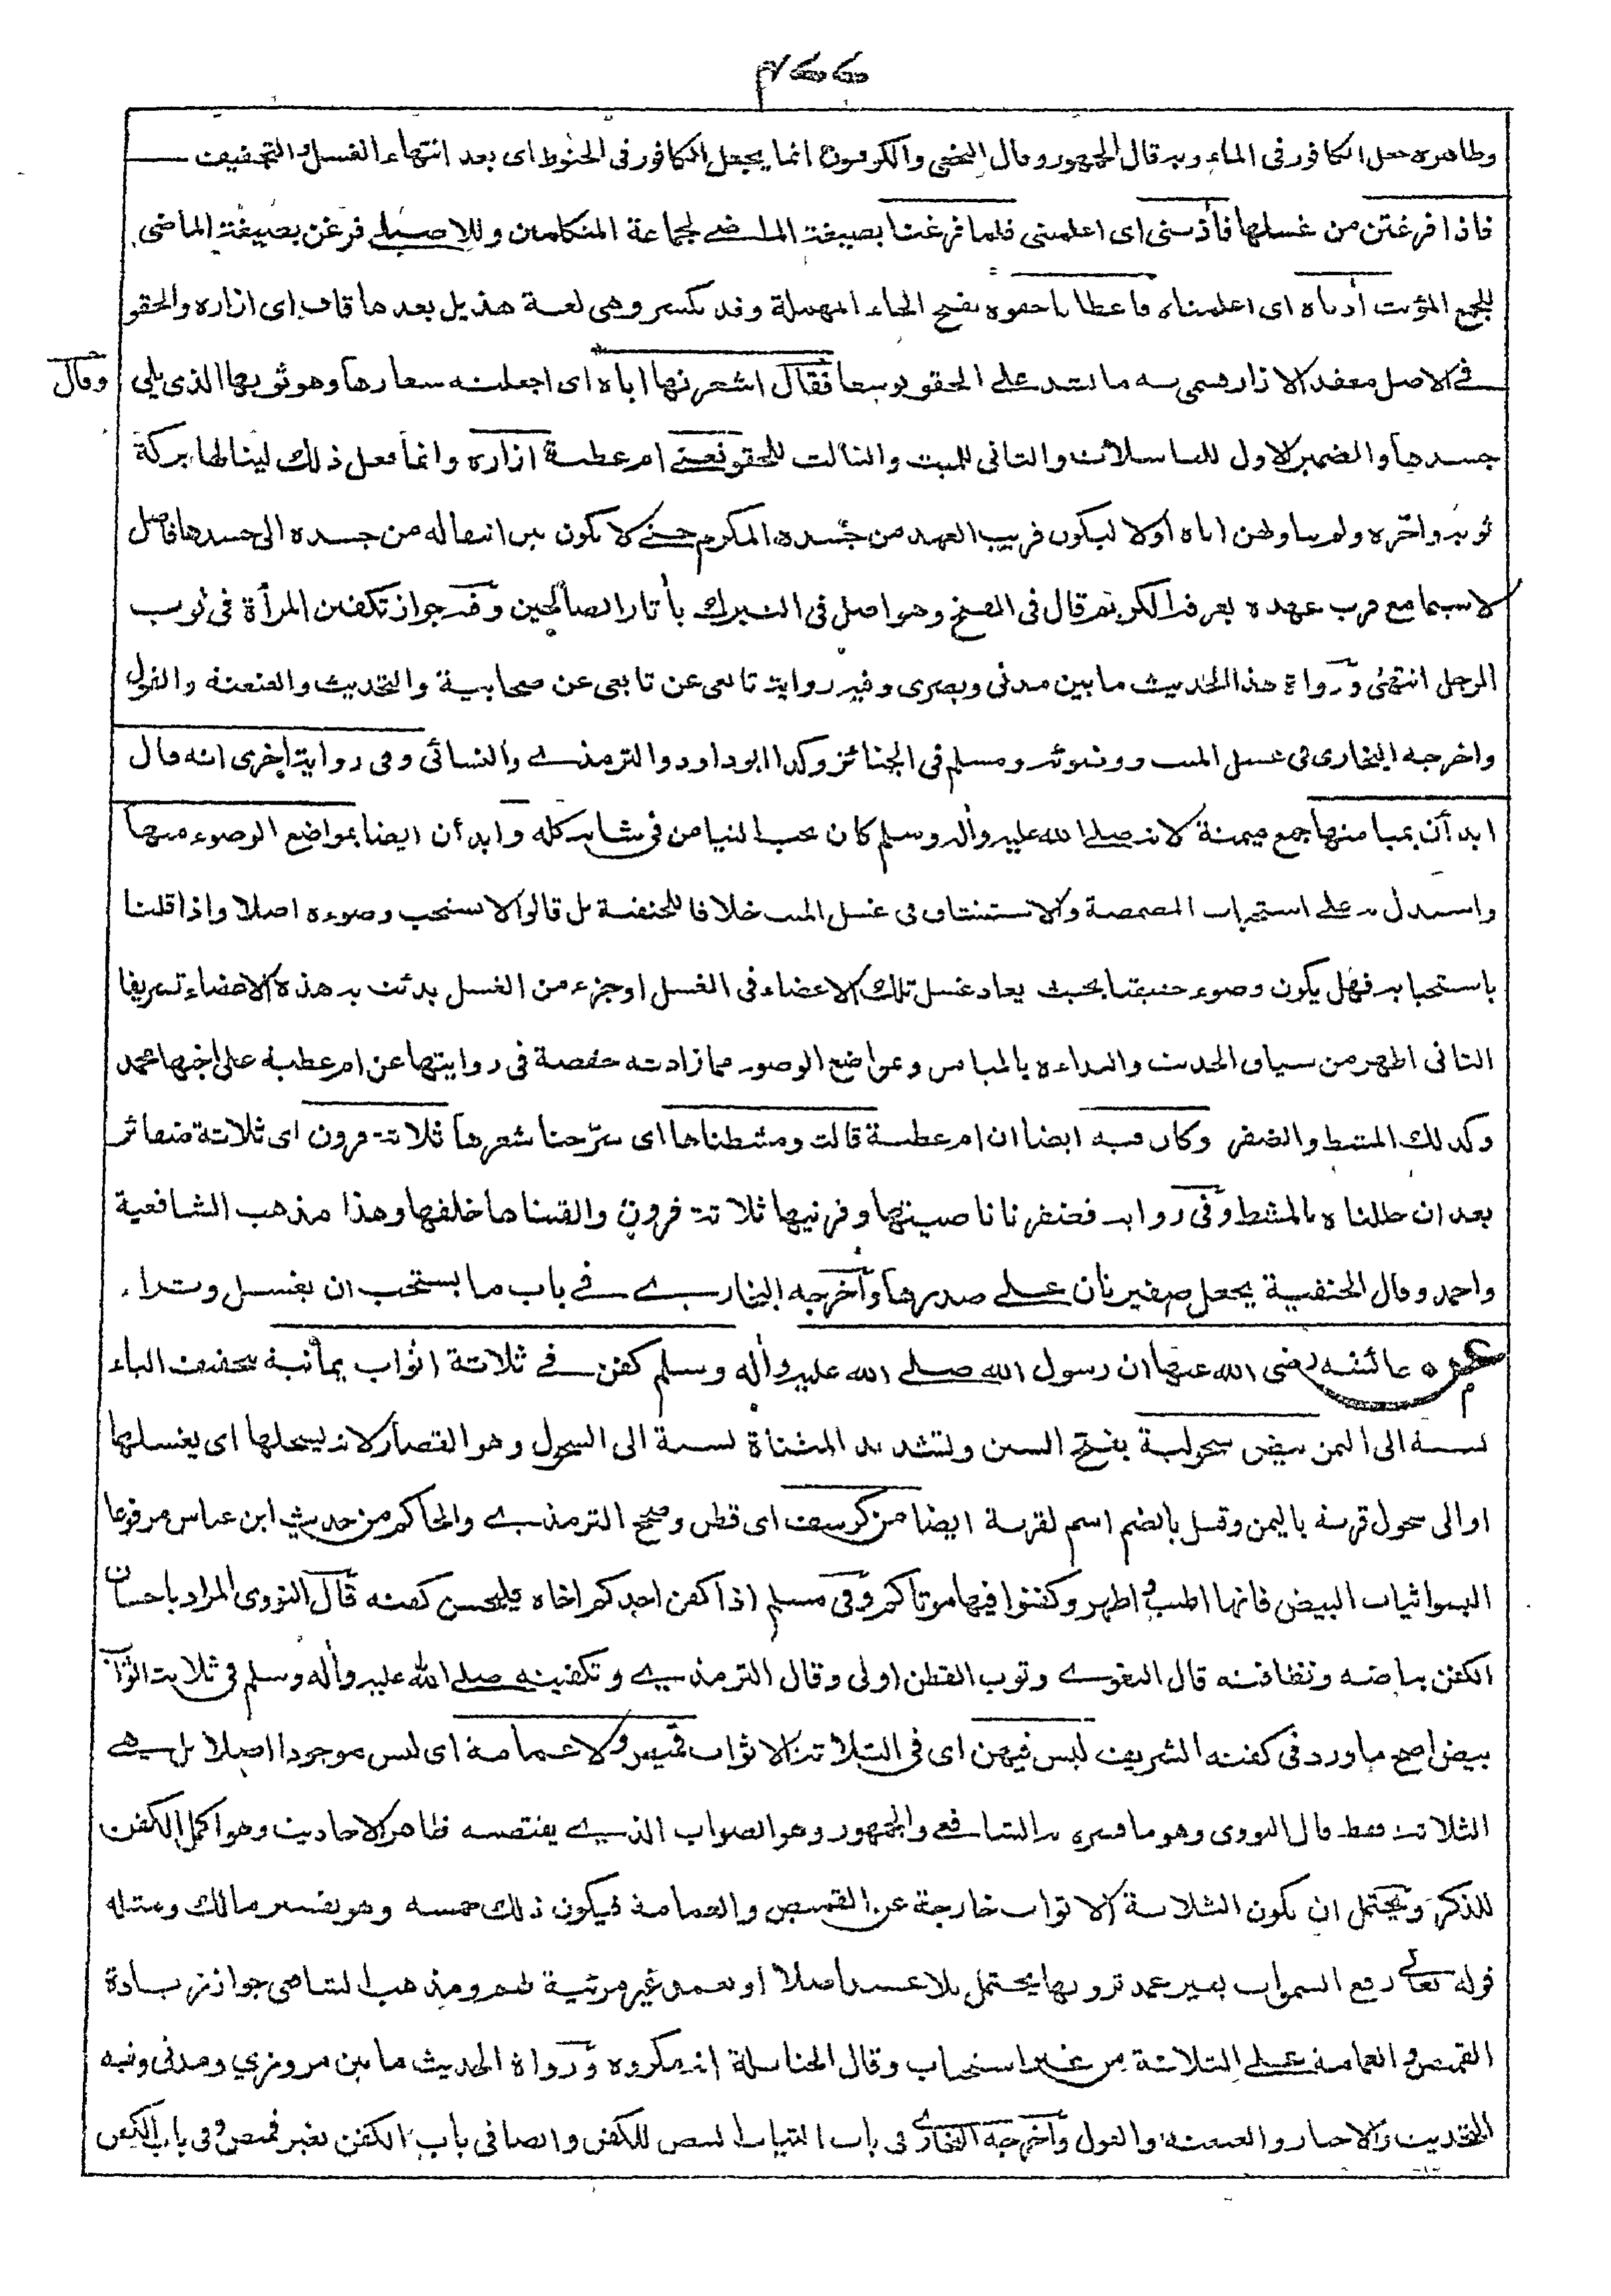 وظاهره جعل الكافور في الماء وبه قال الجمهور وقال النخعي والكوفيون انما يجعل الكافور في الحنوط اى بعد انتهاء الغسل والتجفيف
فاذا فرغتن من غسلها فأذننى اى اعلمننى فلما فرغنا بصيغة الماضي لجماعة المتكلمين وللاصيلي فرغن بصيغة الماضى
للجمع المؤنث أذناه اى اعلمناه فاعطانا حقوه بفتح الحاء المهملة وقد تكسر وهى لغة هذيل بعدها قاف اى ازاره والحقو
في الاصل معقد الازار فسمى به ما يشد على الحقو توسعا فقال اشعرنها اياه اى اجعلنه شعارها وهو ثوبها الذى يلى
وقال
جسدها والضمير الاول للغاسلات والثانى للميت والثالث للحقو تعني ام عطية ازاره وانما فعل ذلك لينالها بركة
ثوبه واخّره ولم يناولهن اياه أولا ليكون قريب العهد من جسده المكرم حتى لا يكون بين انتقاله من جسده الى جسدها فاصل
لاسيما مع قرب عهده بعرقه الكريم قال فى الفتح وهو اصل فى التبرك بأثار الصالحين وفيه جواز تكفين المرأة فى ثوب
الرجل انتهى ورواة هذا الحديث ما بين مدنى وبصرى وفيه رواية تابعى عن تابعى عن صحابية والتحديث والعنعنة والقول
واخرجه البخارى فى غسل الميت ووضوئه ومسلم فى الجنائز وكذا ابو داود والترمذي والنسائى وفى رواية اخرى انه قال
ابدأن بميامنها جمع ميمنة لانه صلى الله عليه وأله وسلم كان يحب التيامن فى شانه كله وابدأن ايضا بمواضع الوضوء منها
واستدل به على استحباب المضمضة والاستنشاق فى غسل الميت خلافا للحنفية بل قالوا لا يستحب وضوءه اصلا واذا قلنا
باستحبابه فهل يكون وضوء حقيقيا بحيث يعاد غسل تلك الاعضاء فى الغسل او جزء من الغسل بدئت به هذه الاعضاء تشريفا
الثانى اظهر من سياق الحديث والبداءة بالميامن وبمواضع الوضوء مما زادته حفصة فى روايتها عن ام عطية على اخيها محمد
وكذلك المشط والضفر وكان فيه ايضا ان ام عطية قالت ومشطناها اى سرّحنا شعرها ثلاثة قرون اى ثلاثة ضفائر
بعد ان حللناه بالمشط وفى رواية فضفرنا ناصيتها وقرنيها ثلاثة قرون والقيناها خلفها وهذا مذهب الشافعية
واحمد وقال الحنفية يجعل ضفيرتان على صدرها وأخرجه البخاري في باب ما يستحب ان يغسل وترا
عن عائشه رضى الله عنها ان رسول الله صلى الله عليه وأله وسلم كفن في ثلاثة اثواب يمانية بتخفيف الياء
نسبة الى اليمن بيض سحولية بفتح السين وتشديد المثناة نسبة الى السحول وهو القصار لانه يسحلها اى يغسلها
او الى سحول قرية باليمن وقيل بالضم اسم لقرية ايضا من كرسف اى قطن وصحح الترمذي والحاكم من حديث ابن عباس مرفوعا
البسوا ثياب البيض فانها اطيب واطهر وكفنوا فيها موتاكم وفى مسلم اذا كفن احدكم اخاه فليحسن كفنه قال النووى المراد باحسان
الكفن بياضه ونظافته قال البغوي وثوب القطن اولى وقال الترمذي وتكفينه صلى الله عليه وأله وسلم فى ثلاثة اثواب
بيض اصح ما ورد فى كفنه الشريف ليس فيهن اى فى الثلاثة الاثواب قميص ولا عمامة اى ليس موجودا اصلا بل هي
الثلاثة فقط قال النووى وهو ما فسره به الشافعي والجمهور وهو الصواب الذي يقتضيه ظاهر الاحاديث وهو اكمل الكفن
للذكر ويحتمل ان تكون الثلاثة الاثواب خارجة عن القميص والعمامة فيكون ذلك خمسه وهو تفسير مالك ومثله
قوله تعالى رفع السموات بغير عمد ترونها يحتمل بلا عمد اصلا او بعمد غير مرئية لهم ومذهب الشافعى جواز زيادة
القميص والعمامة على الثلاثة من غير استحباب وقال الحنابلة انه مكروه ورواة الحديث ما بين مروزي ومدنى وفيه
التحديث والاخبار والعنعنة والقول وأخرجه البخاري فى باب الثياب البيض للكفن وايضا فى باب الكفن بغير قميص وفى باب الكفن